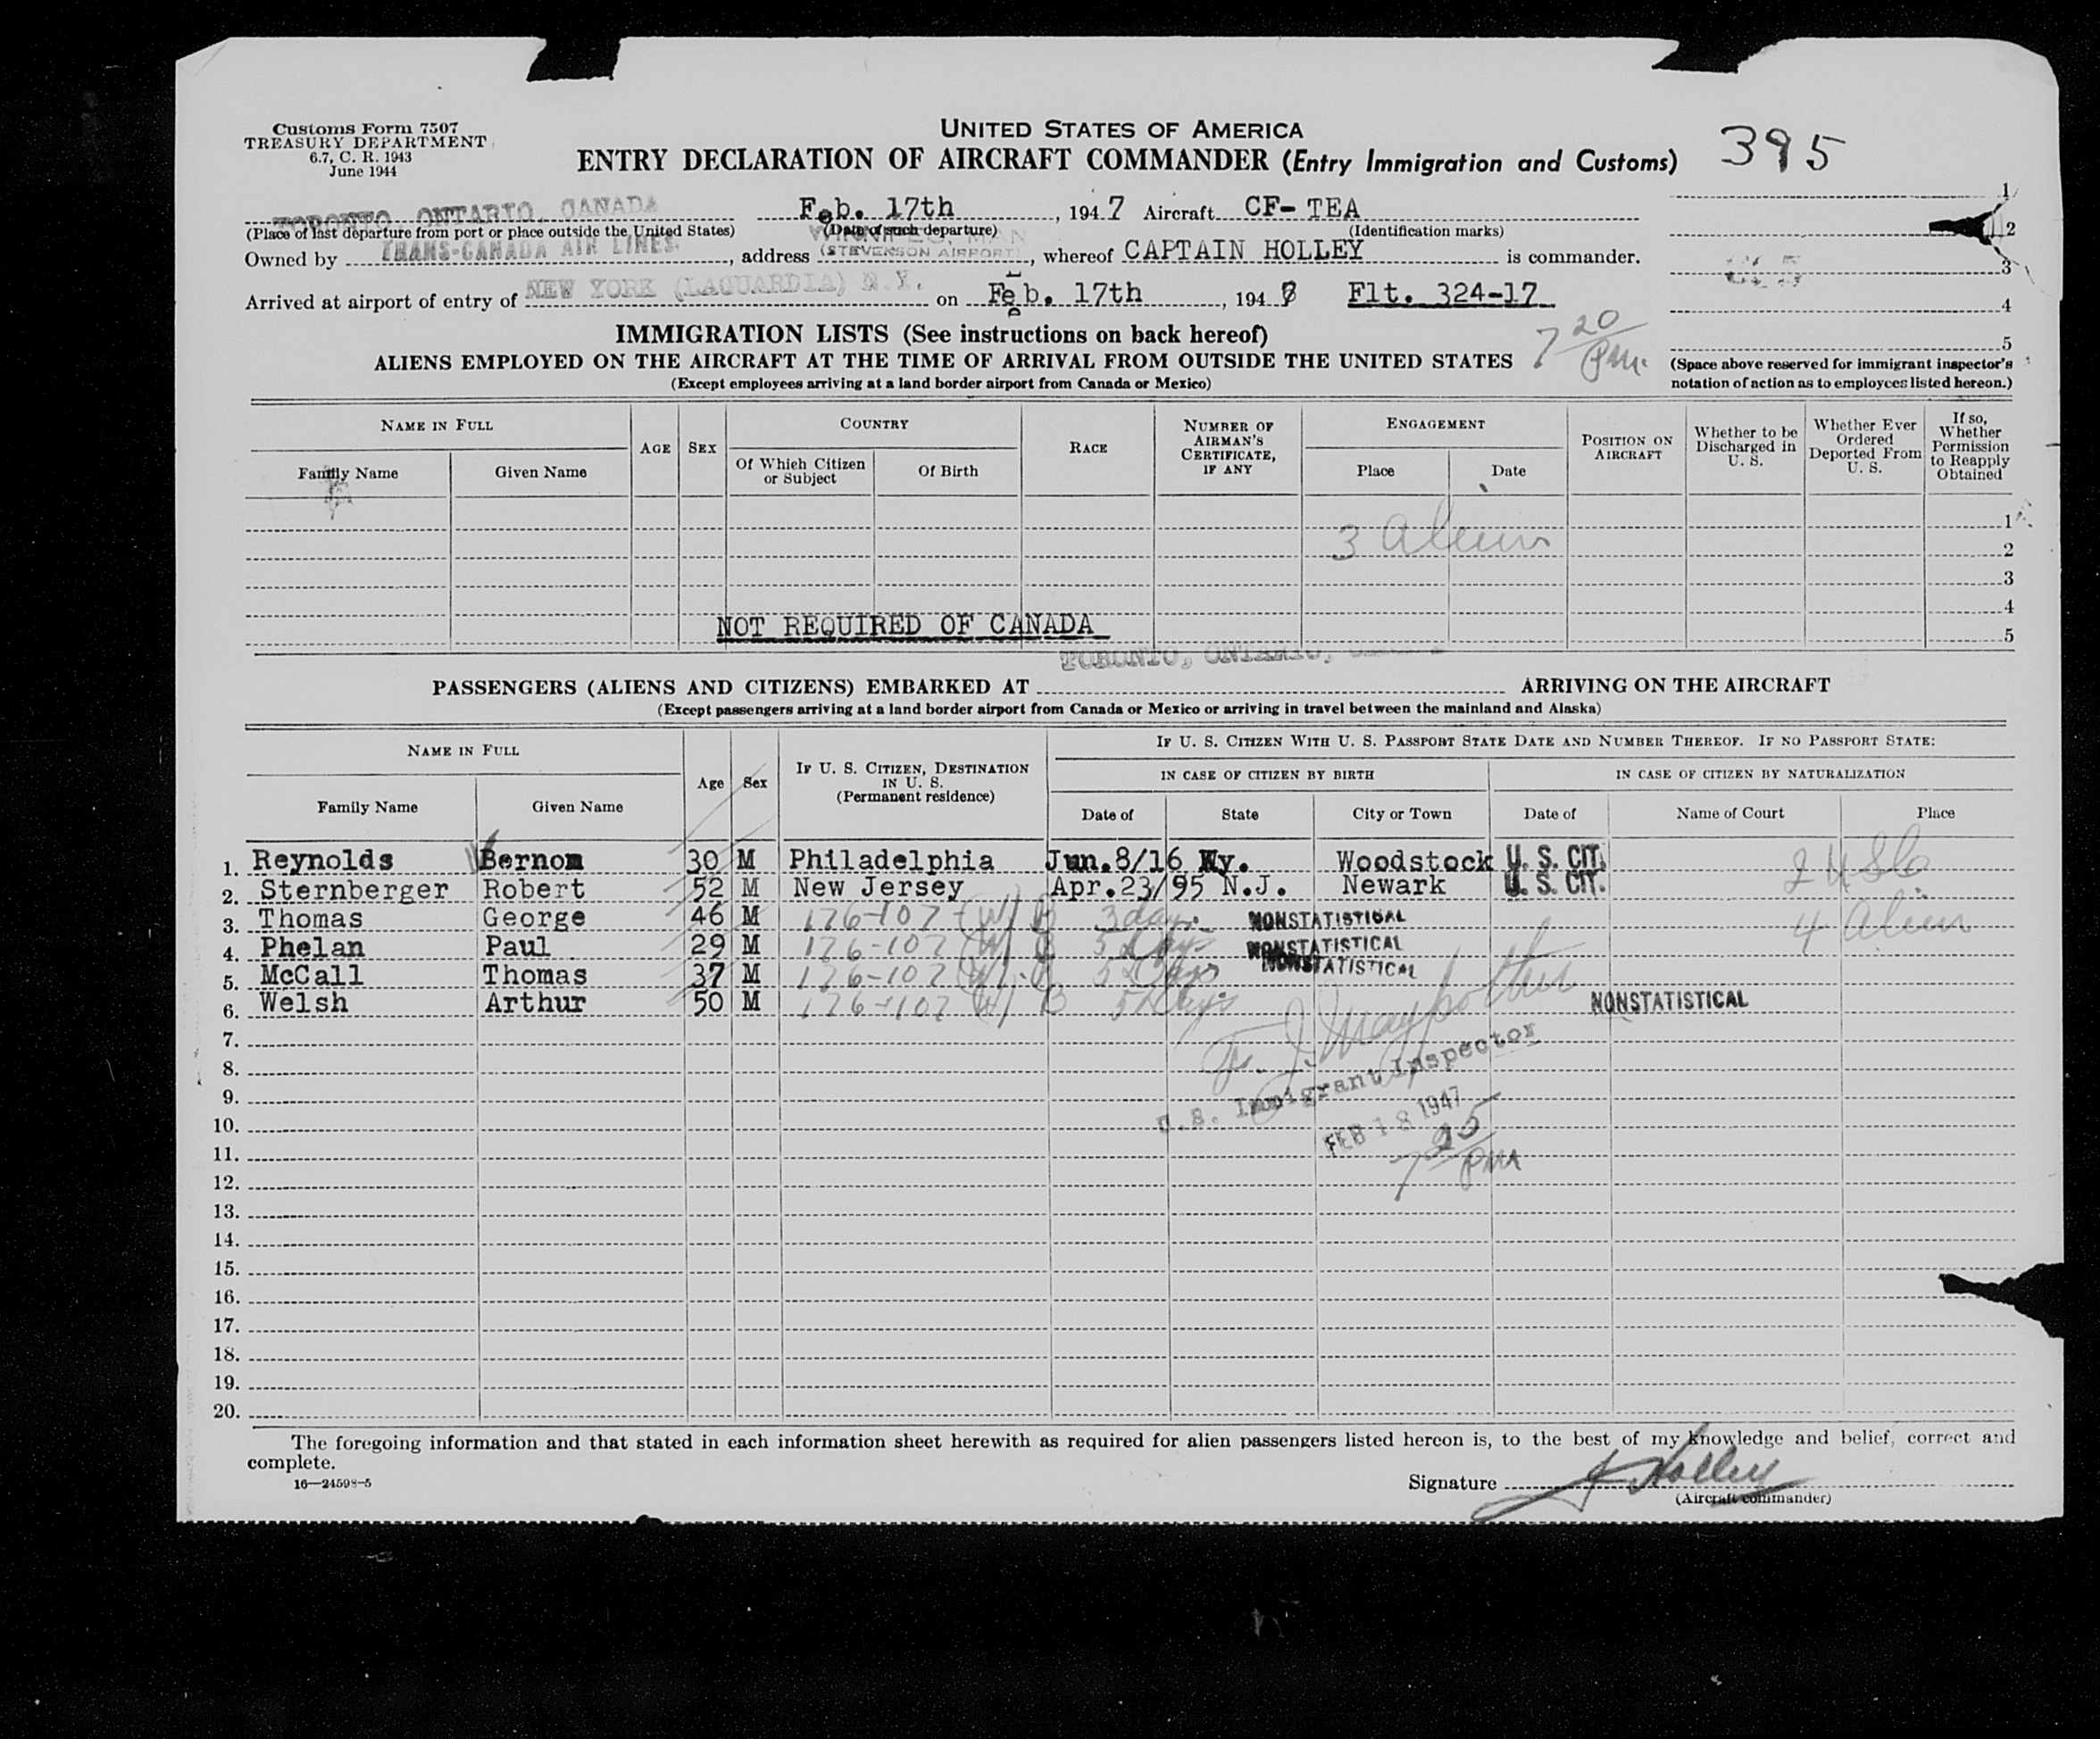 Customs Form 7507
TREASURY DEPARTMENT
6.7, C. R. 1943
June 1944
UNITED STATES OF AMERICA
ENTRY DECLARATION OF AIRCRAFT COMMANDER (Entry Immigration and Customs)
395
TORONTO, ONTARIO, CANADA Feb. 17th, 1947 Aircraft CF- TEA
(Place of last departure from port or place outside the United States) (Date of such departure) (Identification marks)
WINNIPEG, MAN
Owned by TRANS-CANADA AIR LINES, address (STEVENSON AIRPORT), whereof CAPTAIN HOLLEY is commander.
Arrived at airport of entry of NEW YORK (LAGUARDIA) N.Y. on Feb. 17th, 1947 Flt. 324-17
1
2
3
4
5
(Space above reserved for immigrant inspector's notation of action as to employees listed hereon.)
IMMIGRATION LISTS (See instructions on back hereof)
7 20 PM.
ALIENS EMPLOYED ON THE AIRCRAFT AT THE TIME OF ARRIVAL FROM OUTSIDE THE UNITED STATES
(Except employees arriving at a land border airport from Canada or Mexico)
NAME IN FULL
Family Name Given Name
AGE SEX
COUNTRY
Of Which Citizen or Subject Of Birth
RACE
NUMBER OF AIRMAN'S CERTIFICATE, IF ANY
ENGAGEMENT
Place Date
POSITION ON AIRCRAFT
Whether to be Discharged in U. S.
Whether Ever Ordered Deported From U. S.
If so, Whether Permission to Reapply Obtained
1
3 Aliens
2
3
4
NOT REQUIRED OF CANADA
5
TORONTO, ONTARIO,
PASSENGERS (ALIENS AND CITIZENS) EMBARKED AT ARRIVING ON THE AIRCRAFT
(Except passengers arriving at a land border airport from Canada or Mexico or arriving in travel between the mainland and Alaska)
NAME IN FULL
Family Name Given Name
Age Sex
IF U. S. CITIZEN, DESTINATION IN U. S.
(Permanent residence)
IF U. S. CITIZEN WITH U. S. PASSPORT STATE DATE AND NUMBER THEREOF. IF NO PASSPORT STATE:
IN CASE OF CITIZEN BY BIRTH IN CASE OF CITIZEN BY NATURALIZATION
Date of State City or Town Date of Name of Court Place
1. Reynolds Bernon 30 M Philadelphia Jun.8/16 Ky. Woodstock U. S. CIT. 2 USC
2. Sternberger Robert 52 M New Jersey Apr.23/95 N.J. Newark U. S. CIT.
3. Thomas George 46 M 176-107 (W) B 3 days NONSTATISTICAL 4 Alien
4. Phelan Paul 29 M 176-107 (W) B 5 Days NONSTATISTICAL
5. McCall Thomas 37 M 176-107 (W) B 5 Days NONSTATISTICAL
6. Welsh Arthur 50 M 176-107 (W) B 5 Days NONSTATISTICAL
7.
8.
9.
10.
11.
12.
13.
14.
15.
16.
17.
18.
19.
20.
U.S. Immigrant Inspector
FEB 18 1947
7 25 PM
The foregoing information and that stated in each information sheet herewith as required for alien passengers listed hereon is, to the best of my knowledge and belief, correct and
complete.
16—24598-5
Signature J Holley
(Aircraft commander)